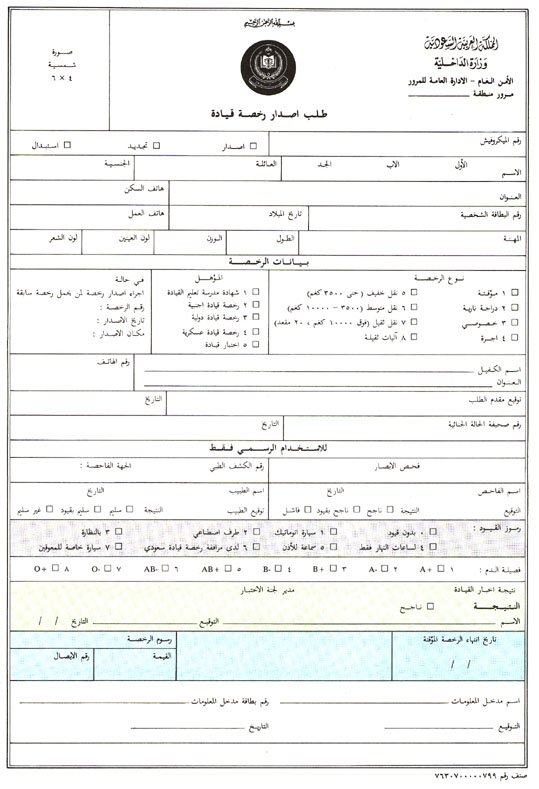 بسم الله الرحمن الرحيم
المملكة العربية السعودية
وزارة الداخلية
الأمن العام - الادارة العامة للمرور
مرور منطقة
صورة
شمسية
٤ × ٦
طلب اصدار رخصة قيادة
رقم الميكروفيش □ اصدار □ تجديد □ استبدال
الاسم الأول الاب الجد العائلة الجنسية
العنوان هاتف السكن
رقم البطاقة الشخصية تاريخ الميلاد هاتف العمل
المهنة الطول الوزن لون العينين لون الشعر
بيانات الرخصة
نوع الرخصة
□ ١ مؤقتة □ ٥ نقل خفيف (حتى ٣٥٠٠ كغم)
□ ٢ دراجة نارية □ ٦ نقل متوسط (٣٥٠٠ - ١٠٠٠٠ كغم)
□ ٣ خصوصي □ ٧ نقل ثقيل (فوق ١٠٠٠٠ كغم ، ٢٠ مقعد)
□ ٤ اجرة □ ٨ آليات ثقيلة
المؤهل
□ ١ شهادة مدرسة تعليم القيادة
□ ٢ رخصة قيادة اجنبية
□ ٣ رخصة قيادة دولية
□ ٤ رخصة قيادة عسكرية
□ ٥ اختبار قيادة
في حالة
اجراء اصدار رخصة لمن يحمل رخصة سابقة
رقم الرخصة :
تاريخ الاصدار :
مكان الاصدار :
اسم الكفيل رقم الهاتف
العنوان
توقيع مقدم الطلب التاريخ
رقم صحيفة الحالة الجنائية التاريخ
للاستخدام الرسمي فقط
فحص الابصار رقم الكشف الطبي الجهة الفاحصة :
اسم الفاحص التاريخ اسم الطبيب التاريخ
التوقيع النتيجة □ ناجح □ ناجح بقيود □ فاشل توقيع الطبيب النتيجة □ سليم □ سليم بقيود □ غير سليم
رموز القيود : □ ٠ بدون قيود □ ١ سيارة اتوماتيك □ ٢ طرف اصطناعي □ ٣ بالنظارة
□ ٤ لساعات النهار فقط □ ٥ سماعة للأذن □ ٦ لدى مرافقة رخصة قيادة سعودي □ ٧ سيارة خاصة للمعوقين
فصيلة الدم : ١ □ A+ ٢ □ A- ٣ □ B+ ٤ □ B- ٥ □ AB+ ٦ □ AB- ٧ □ O- ٨ □ O+
نتيجة اخبار القيادة مدير لجنة الاختبار
النتيجة □ ناجح
الاسم التوقيع التاريخ / /
تاريخ انتهاء الرخصة المؤقتة رسوم الرخصة
/ / القيمة رقم الايصال
اسم مدخل المعلومات رقم بطاقة مدخل المعلومات
التوقيع التاريخ
صنف رقم ٧٦٣٠٧٠٠٠٠٠٧٩٩